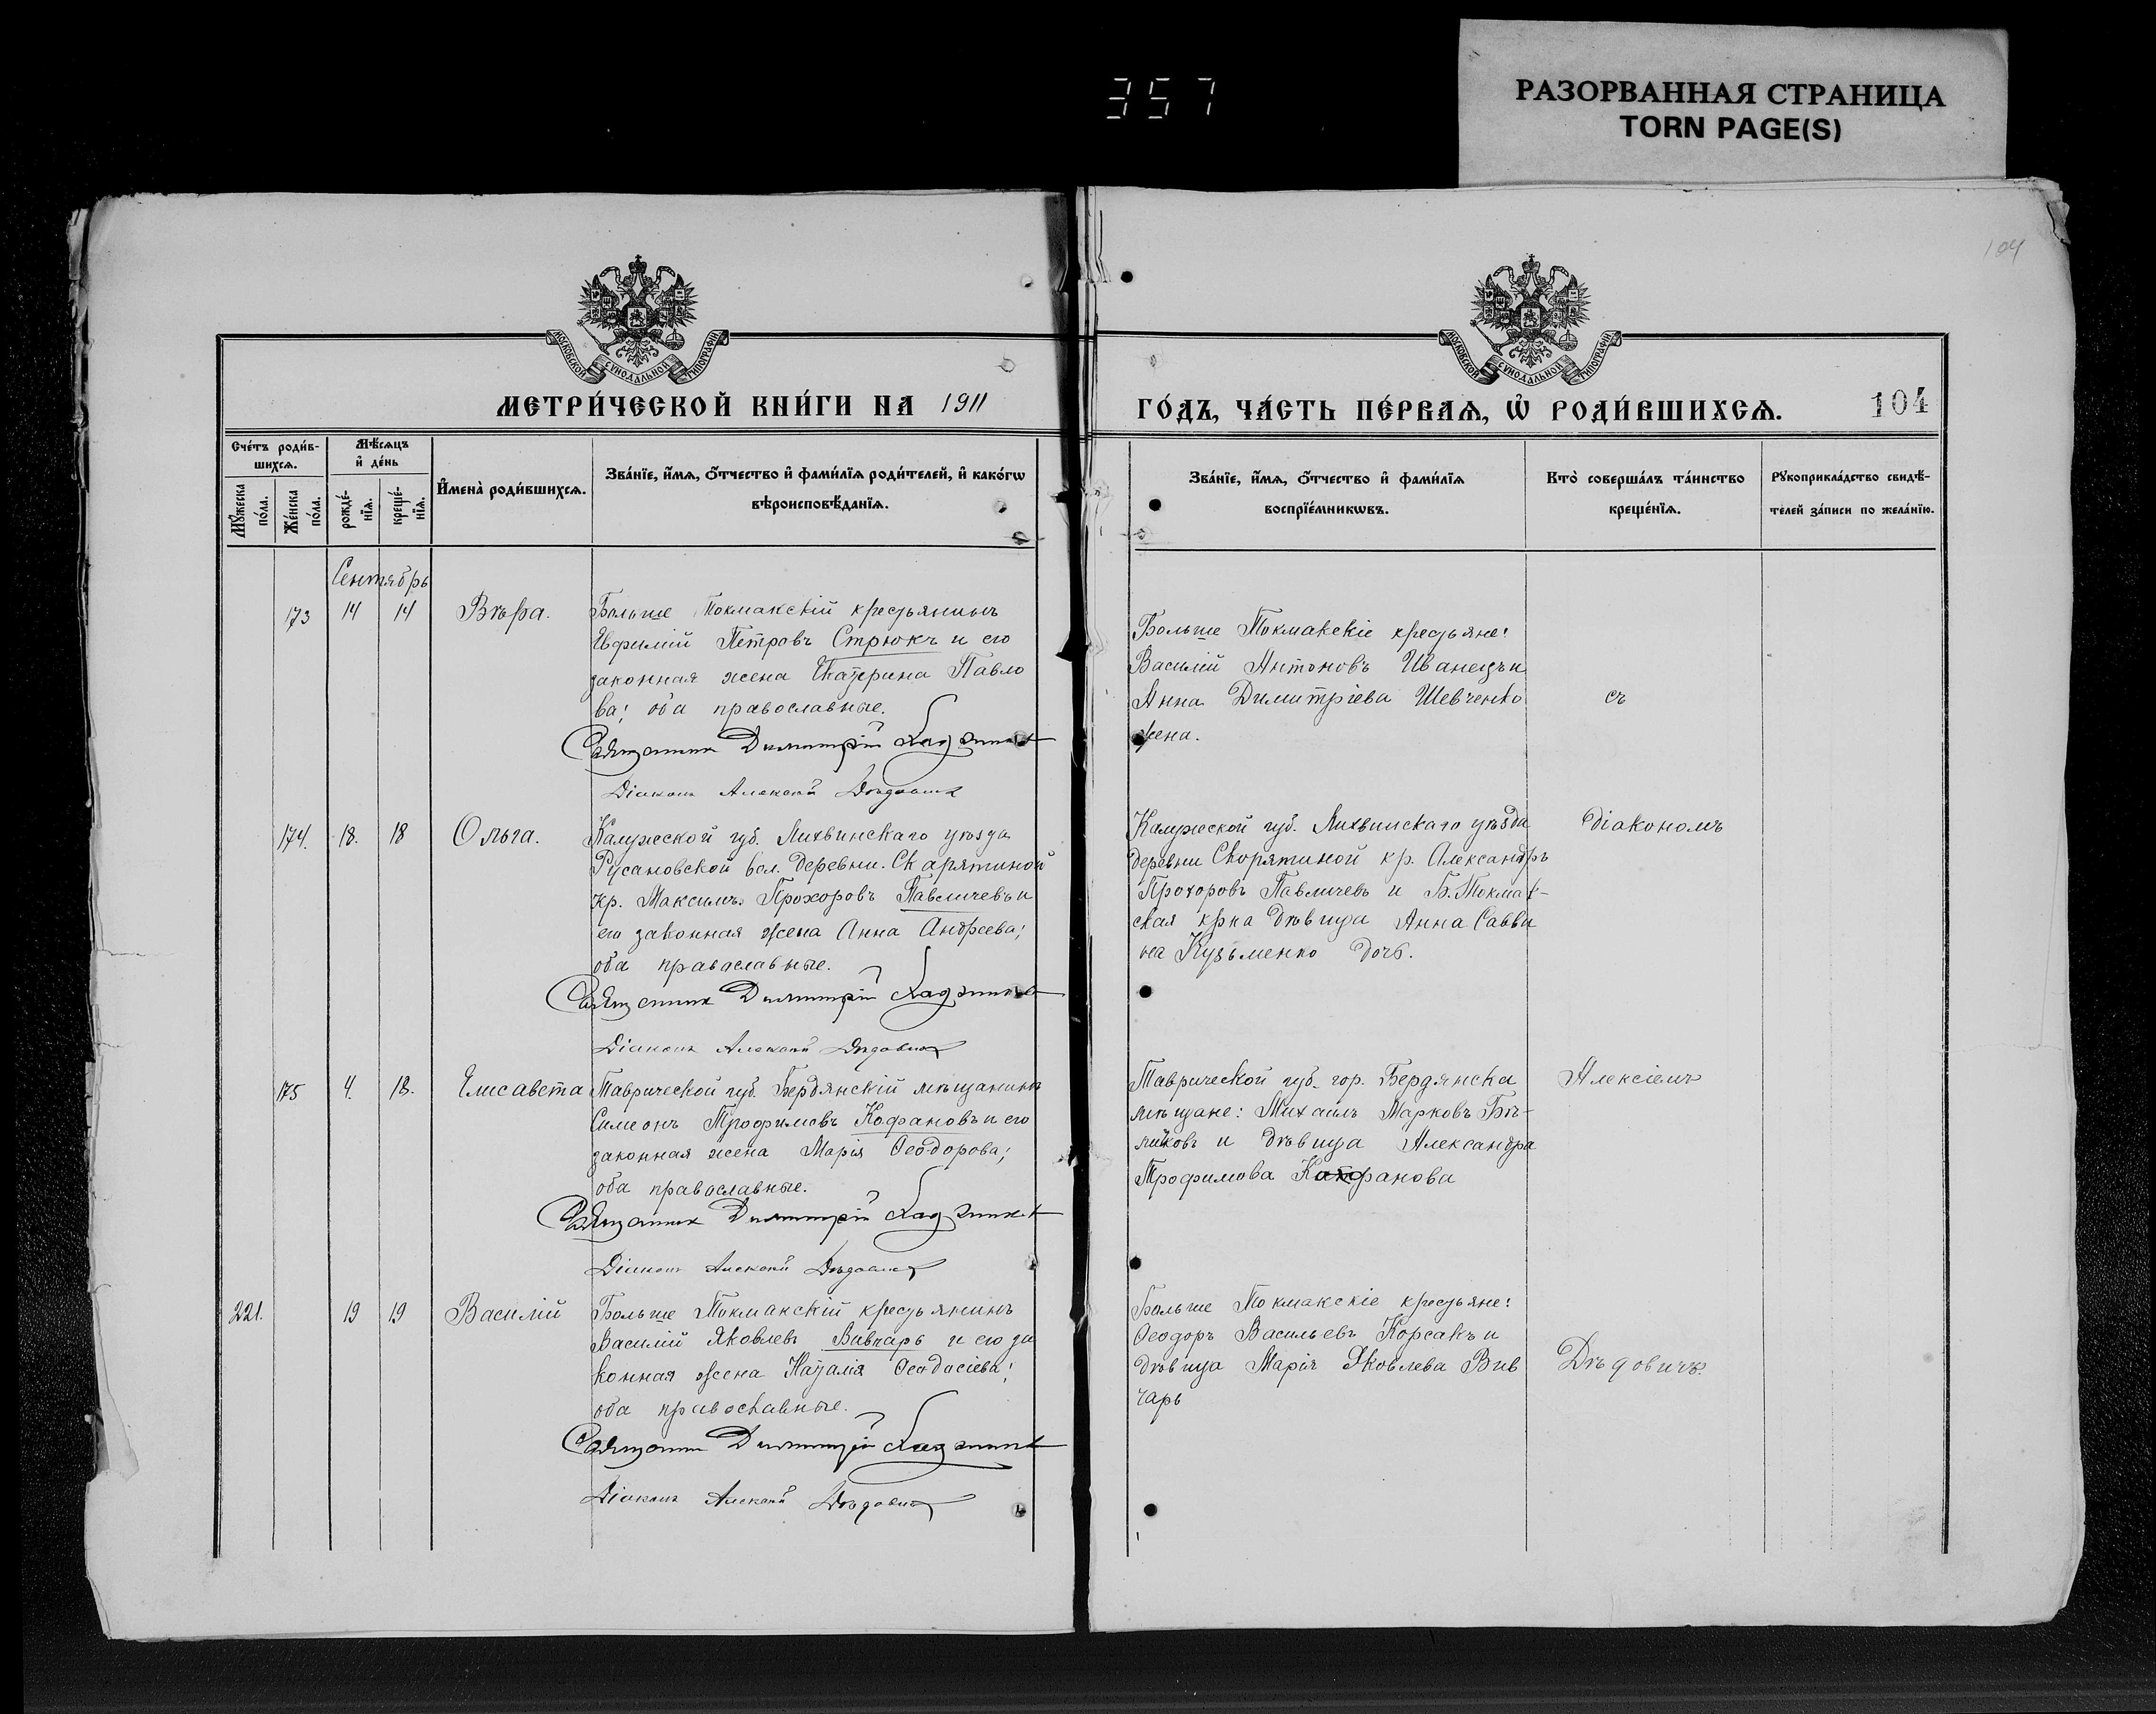 357
РАЗОРВАННАЯ СТРАНИЦА
TORN PAGE(S)
104
МОСКОВСКОЙ СѴНОДАЛЬНОЙ ТИПОГРАФІИ
МОСКОВСКОЙ СѴНОДАЛЬНОЙ ТИПОГРАФІИ
МЕТРИ́ЧЕСКОЙ КНИ́ГИ НА 1911
ГО́ДЪ, ЧА́СТЬ ПЕ́РВАѦ, Ѡ҆ РОДИ́ВШИХСѦ. 104
Сче́тъ роди́в-
шихсѧ.
Мꙋ́жеска по́ла.
Же́нска по́ла.
Мѣ́сѧцъ
и҆ де́нь
рожде́-нїѧ.
креще́-нїѧ.
И҆мена̀ роди́вшихсѧ.
Зва́нїе, и҆́мѧ, ѻ҆́тчество и҆ фами́лїѧ роди́телей, и҆ како́гѡ
вѣроисповѣ́данїѧ.
Зва́нїе, и҆́мѧ, ѻ҆́тчество и҆ фами́лїѧ
воспрїе́мникѡвъ.
Кто̀ соверша́лъ та́инство
креще́нїѧ.
Рꙋкоприкла́дство свидѣ́-
телей за́писи по жела́нїю.
Сентябрь
173 14 14 Вѣра.
Больше Токмакскій крестьянинъ
Евфимій Петровъ Стрюкъ и его
законная жена Екатерина Павло
ва; оба православные.
Священник Димитрій
Діаконъ Алексѣй Дѣдовичъ
Больше Токмакскіе крестьяне:
Василій Антоновъ Иванецъ и
Анна Димитріева Шевченко
жена.
съ
174. 18. 18 Ольга.
Калужской губ. Лихвинскаго уѣзда
Русановской вол. деревни. Скарятиной
кр. Максимъ Прохоровъ Павличевъ и
его законная жена Анна Андреева;
оба православные.
Священник Димитрій
Діаконъ Алексѣй Дѣдовичъ
Калужской губ. Лихвинскаго уѣзда
деревни Скорятиной кр. Александръ
Прохоровъ Павличевъ и Б. Токмак-
ская крка дѣвица Анна Савви
на Кузьменко дочь.
діакономъ
175 4. 18. Елисавета
Таврической губ. Бердянскій мѣщанинъ
Симеонъ Трофимовъ Кофановъ и его
законная жена Марія Ѳеодорова;
оба православные.
Священник Димитрій
Діаконъ Алексѣй Дѣдовичъ
Таврической губ. гор. Бердянска
мѣщане: Михаилъ Марковъ
и дѣвица Александра
Трофимова
Алексіемъ
221. 19 19 Василій
Больше Токмакскій крестьянинъ
Василій Яковлевъ Вивчарь и его за
конная жена Наталія Ѳеодосіева;
оба православные.
Священник Димитрій
Діаконъ Алексѣй Дѣдовичъ
Больше Токмакскіе крестьяне:
Ѳеодоръ Васильевъ Корсакъ и
дѣвица Марія Яковлева Вив
чарь
Дѣдовичъ.